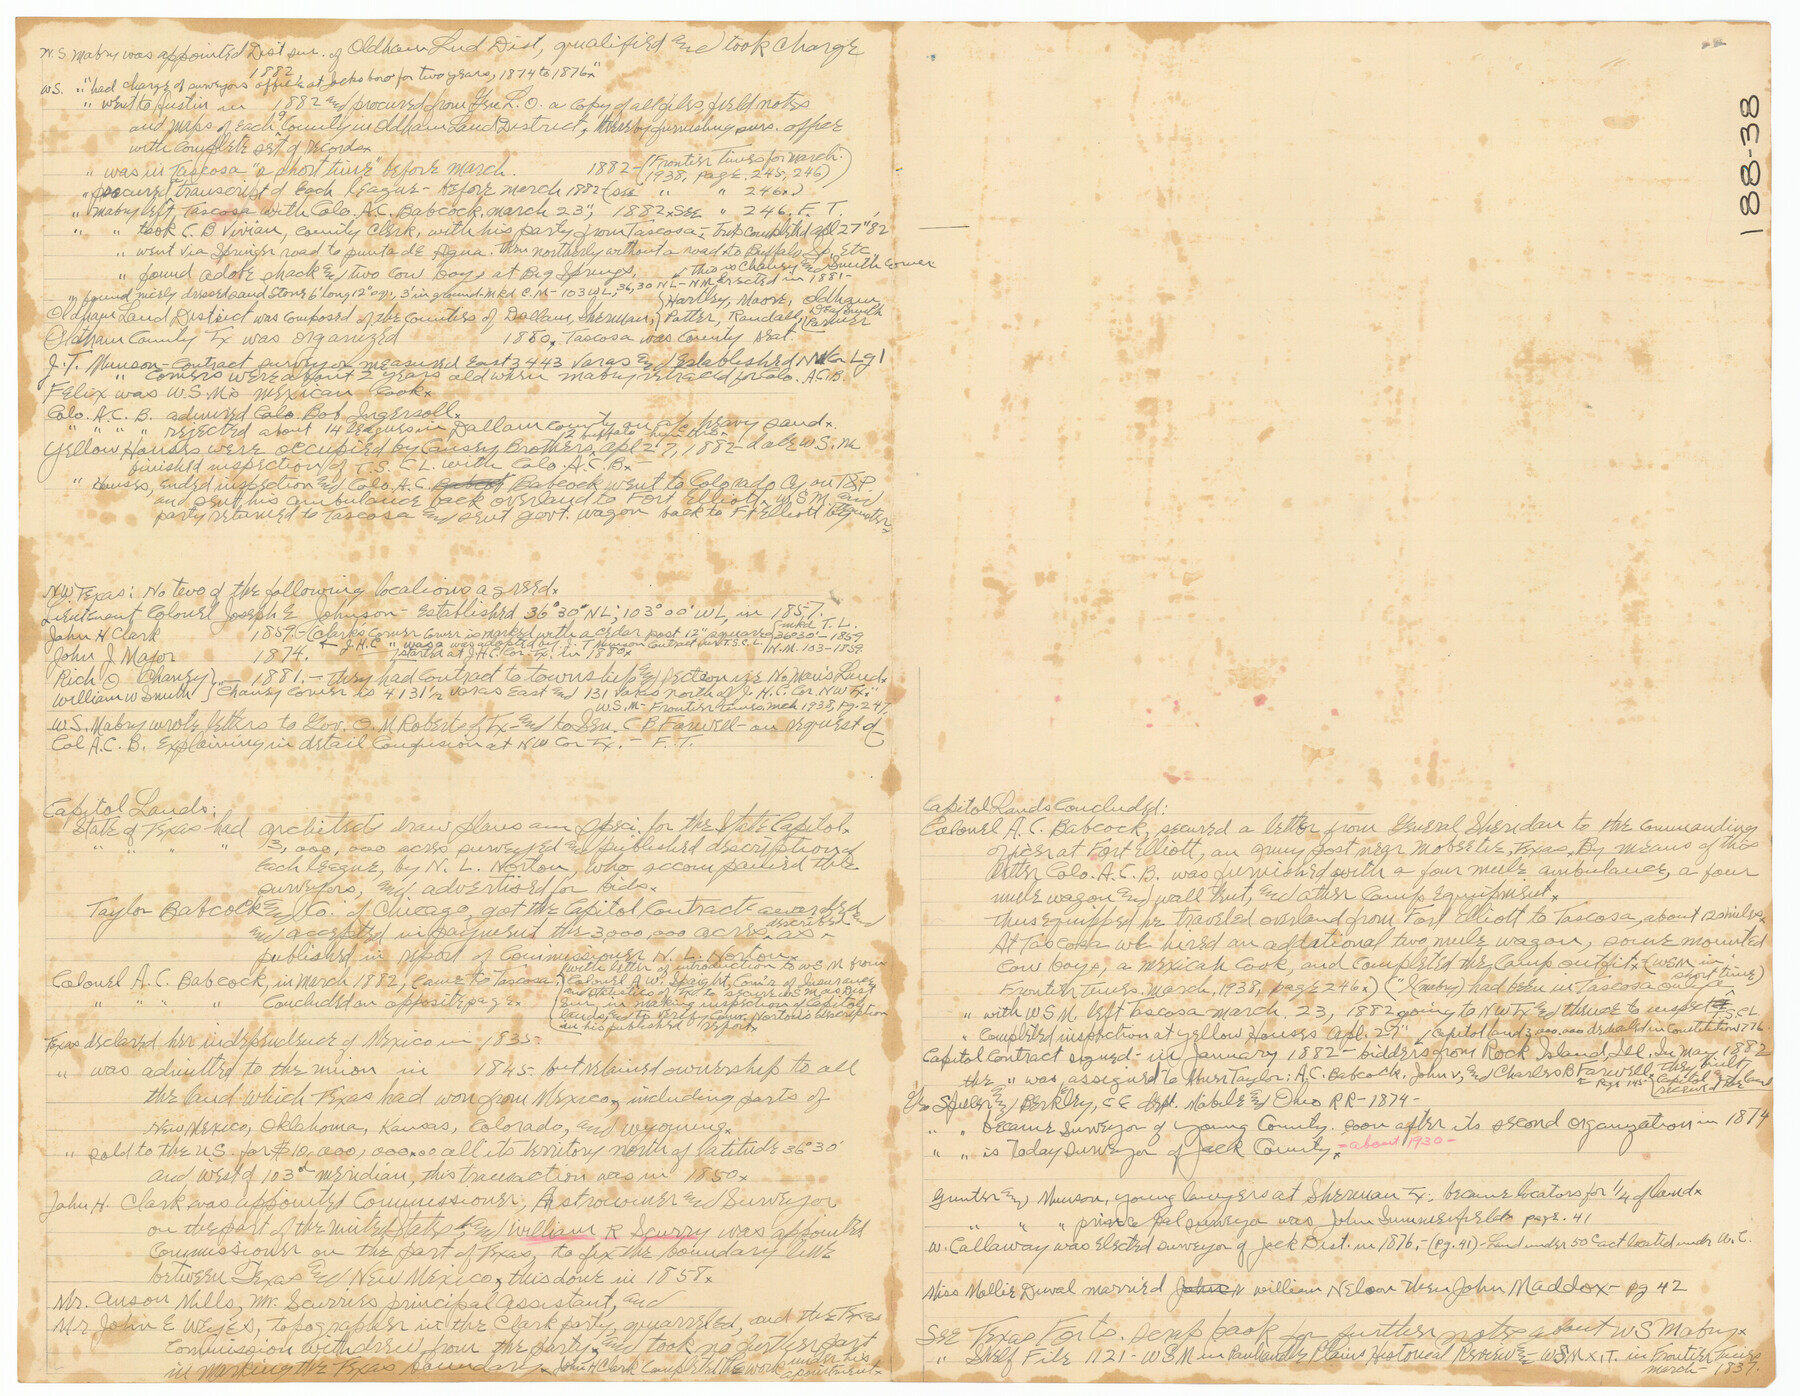 W.S. Mabry was appointed Dist sur. of Oldham Lnd Dist, qualified and took charge
1882
W.S. "had charge of surveyors office at Jacksboro for two years, 1874 to 1876x"
" went to Austin in 1882 and procured from Gen L.O. a copy of all files, field notes
and maps of each County in Oldham Land District, thereby furnishing surs. office
with complete set of recordsx
" was in Tascosa "a short time" before march. 1882-(Frontier Times for March.
1938, page. 245, 246)
" procured transcript of Each League - before march 1882 (see " " 246.)
" Mabry left Tascosa with Colo. A.C. Babcock, march 23", 1882x See " 246. F.T.
" " took C.B Vivian, County Clerk, with his party from Tascosa - Trip completed apl 27" '82
" went via Springer road to punta de Agua. then northerly without a road to Buffalo Sp, Etc,
" found adobe shack and two cow boys at Big Springs. this is Chaney and Smith Corner
" found nicely dressed sand Stone 6' long 12" sqr. 3' in ground-mkd C.M-103 WL, 36,30 NL-NM, Erected in 1881-
Oldham Land District was composed of the Counties of Dallam, Sherman, Hartley, Moore, Oldham,
Potter, Randall, Deaf Smith
Parmer
Oldham County Tx was organized 1880, Tascosa was County seat.
J.T. Munson - Contract surveyor measured East 3443 varas and Established NW Cor Lg 1
" Corners were about 2 years old when Mabry retraced for Colo. A.C.B.
Felix was W.S.M's mexican Cook.
Colo. A.C. B. admired Colo Bob Ingersoll.
" " " " rejected about 14 Leagues in Dallam County on a/c heavy sand.
2 buffalo hunters
Yellow Houses were occupied by Causey Brothers, apl 27, 1882 - date W.S.M
finished inspection of T.S.C L. with Colo. A.C.B.
" Houses, ended inspection and Colo. A.C. Babcock went to Colorado Cy on T&P.
and sent his ambulance back overland to Fort Elliott, W S M. and
party returned to Tascosa and sent govt. wagon back to Ft Elliott by
NW Texas: No two of the following locations agreed.
Lieutenant Colonel Joseph E Johnson - Established 36°30' NL; 103°00' WL, in 1857.
John H Clark 1859 - (Clarks Corner Cover is marked with a cedar post 12" square mkd T.L. 36°30'-1859
N.M. 103-1859
John J Major 1874. J.H.C " was adopted by J.T Munson Contract sur. T.S.C.L.
started at J.H.C. Cor. Tx. in 1880x
Rich O Chaney
William W Smith - 1881. - they had contract to township and section ize No Man's Land.
Chaney Corner is "4131½ varas East and 131 varas north of J.H.C. Cor. NW Tx."
W.S.M - Frontier times mch 1938, pg. 247,
W.S. Mabry wrote letters to Gov. O.M Roberts of Tx and to Sen. C B Farwell - on request of
Col A.C. B. Explaining in detail Confusion at N W Cor Tx. - F.T.
Capitol Lands:
State of Texas had architects draw plans and speci. for the State Capitol.
" " " " 3,000,000 acres surveyed and published description of
each league, by N. L. Norton, who accompanied the
surveyors, and advertised for bids.
Taylor Babcock and Co. of Chicago, got the Capitol Contract awarded
and accepted in payment the 3,000,000 acres, as described and
published in report of Commissioner N. L. Norton.
Colonel A.C. Babcock, in March 1882, came to Tascosa, (with letter of introduction to W S M from
Colonel A.W. Spaight, Com'r of Insurance
and Statistics of Tx to secure W.S.M as Dist
Sur., in making inspection of Capitol
lands and to verify Com. Norton's description
in his published report)
" " " " Concluded on opposite pagex
Texas declared her independence of Mexico in 1835.
" was admitted to the union in 1845 - but retained ownership to all
the land which Texas had won from Mexico, including parts of
New Mexico, Oklahoma, Kansas, Colorado, and Wyoming.
" sold to the U.S. for $10,000,000.00 all its territory north of latitude 36°30'
and west of 103d meridian, this transaction was in 1850x
John H. Clark was appointed Commissioner, Astronomer and Surveyor
on the part of the united states, and William R Scurry was appointed
Commissioner on the part of Texas, to fix the boundary line
between Texas and New Mexico, this done in 1858.
Mr. Anson Mills, Mr. Scurries principal assistant, and
Mr John E Weyes, topographer in the Clark party, quarreled, and the Texas
Commission withdrew from the party, and took no further part
in marking the Texas boundary. John H Clark Completed the work under his
apointment.
188-38
Capitol Lands Concluded:
Colonel A.C. Babcock, secured a letter from General Sheridan to the Commanding
officer at Fort Elliott, an army post near Mobeetie, Texas, By means of this
letter Colo. A.C. B. was furnished with a four mule ambulance, a four
mule wagon and wall tent, and other Camp Equipment.
Thus equipped he traveled overland from Fort Elliott to Tascosa, about 120 miles.
At Tascosa we hired an additional two mule wagon, some mounted
cow boys, a mexican Cook, and completed the Camp outfit. (WSM in
Frontier Times. March, 1938, page 246.) ("I (mabry) had been in Tascosa only a short time)
" with W S M. left Tascosa march 23, 1882 going to NW Tx and thence to inspect T.S.C.L.
" Completed inspection at Yellow Houses Apl. 27" Capitol land 3,000,000 dedicated in Constitution 1876.
Capitol Contract signed - in January 1882 - bidders from Rock Island, Ill. In May 1882
the " was assigned to Abner Taylor: A.C. Babcock, John V, and Charles B Farwell, they built
Capitol &
received the land
Pge 145
Geo Spiller and Berkley, CE dept. Mobile and Ohio RR-1874-
" " became surveyor of young County soon after its second organization in 1874
" " is Today Surveyor of Jack County. -about 1930-
Gunter and Munson, young lawyers at Sherman Tx., became locators for ¼ of land.
" " " principal surveyor was John Summerfield. page. 41
W. Callaway was elected surveyor of Jack Dist. in 1876.-(Pg. 41)-Land under 50 C act located under W.C.
Miss Mollie Duval married William Nelson then John Maddox - pg 42
See Texas Forts. Scrap book for further notes about W S Mabry.
" Shelf File 1121 - W S M in Panhandle Plains Historical Review and W S M X.I.T. in Frontier Times
march - 1937.